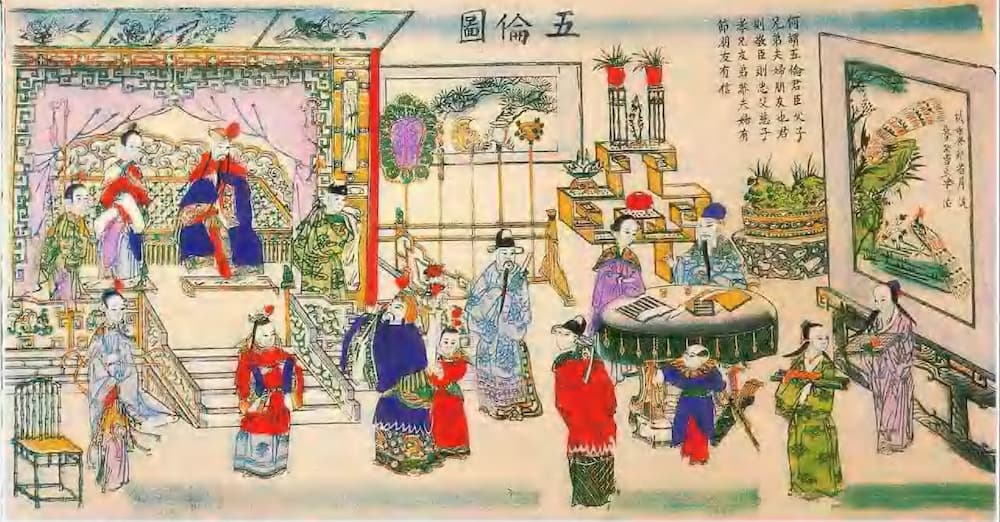 五倫圖
何謂五倫君臣父子
兄弟夫婦朋友也君
則敬臣則忠父慈子
孝兄友弟恭夫婦有
節朋友有信